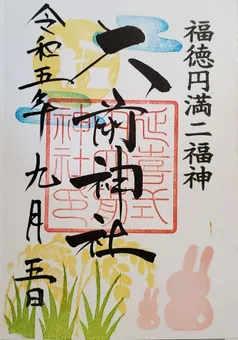 福徳円満二福神
大前神社
延喜式
神社印
令和五年九月五日